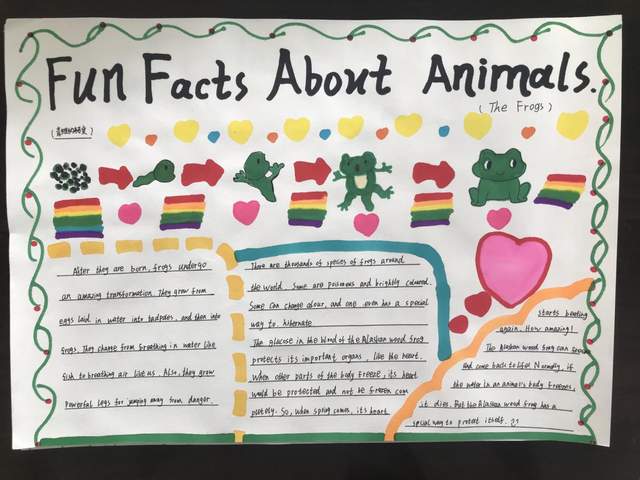 Fun Facts About Animals.
( The Frogs )
After they are born, frogs undergo
an amazing transformation. They grow from
eggs laid in water into tadpoles, and then into
frogs. They change from breathing in water like
fish to breathing air like us. Also, they grow
powerful legs for jumping away from danger.
There are thousands of species of frogs around
the world. Some are poisonous and brightly coloured.
Some can change colour, and one even has a special
way to hibernate
The glucose in the blood of the Alaskan wood frog
protects its important organs, like the heart.
When other parts of the body freeze, its heart
would be protected and not be frozen com
pletely. So, when spring comes, its heart
starts beating
again. How amazing!
The Alaskan wood frog can
and come back to life! Normally, if
the water in an animal's body freezes,
it dies. But the Alaskan wood frog has a
special way to protect itself.